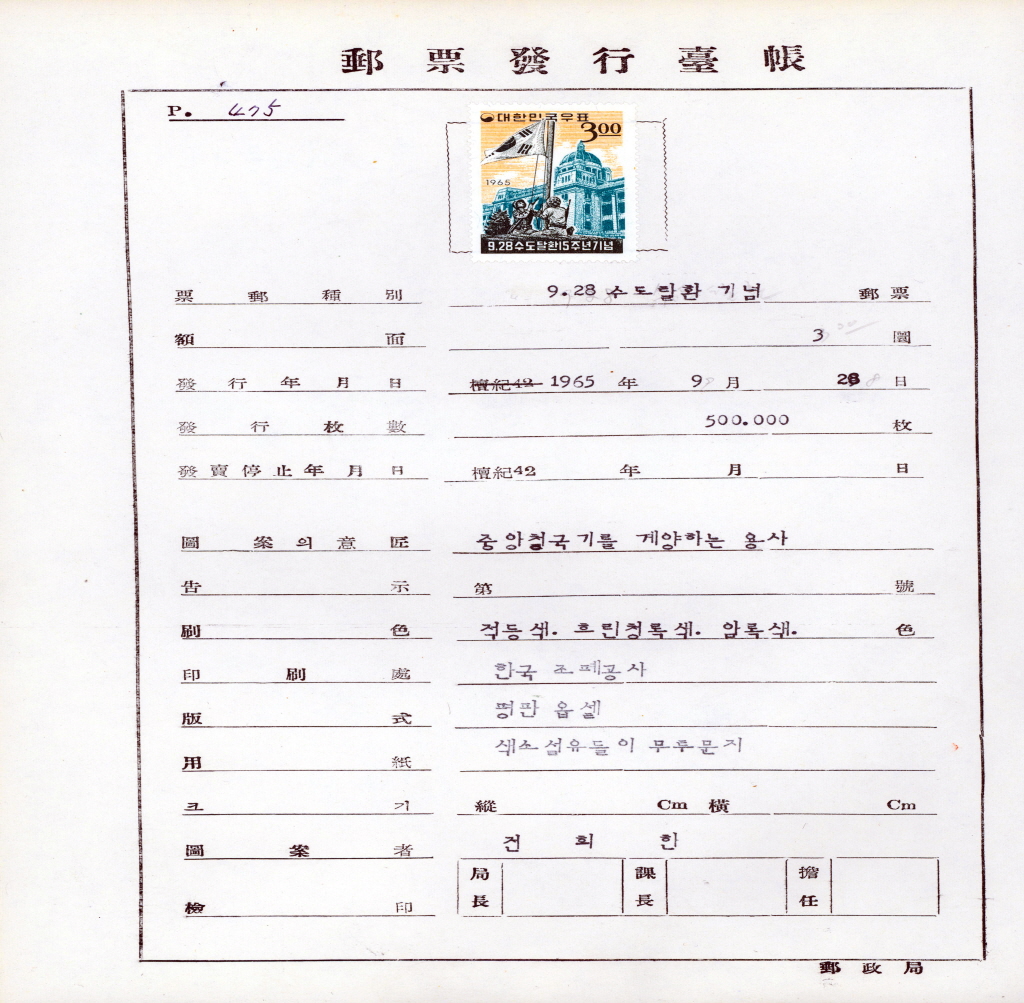 郵票發行臺帳
P. 475
대한민국우표
3.00
1965
9.28수도탈환15주년기념
票郵種別 9.28 수도탈환 기념 郵票
額面 3 圜
發行年月日 檀紀42 1965 年 9 月 28 日
發行枚數 500.000 枚
發賣停止年月日 檀紀42 年 月 日
圖案의意匠 중앙청국기를 게양하는 용사
告示 第 號
刷色 적등색. 흐린청록색. 암록색. 色
印刷處 한국 조폐공사
版式 평판 옵셀
用紙 색소섬유들이 무투문지
크기 縱 Cm 橫 Cm
圖案者 전 희 한
檢印 局長 課長 擔任
郵政局